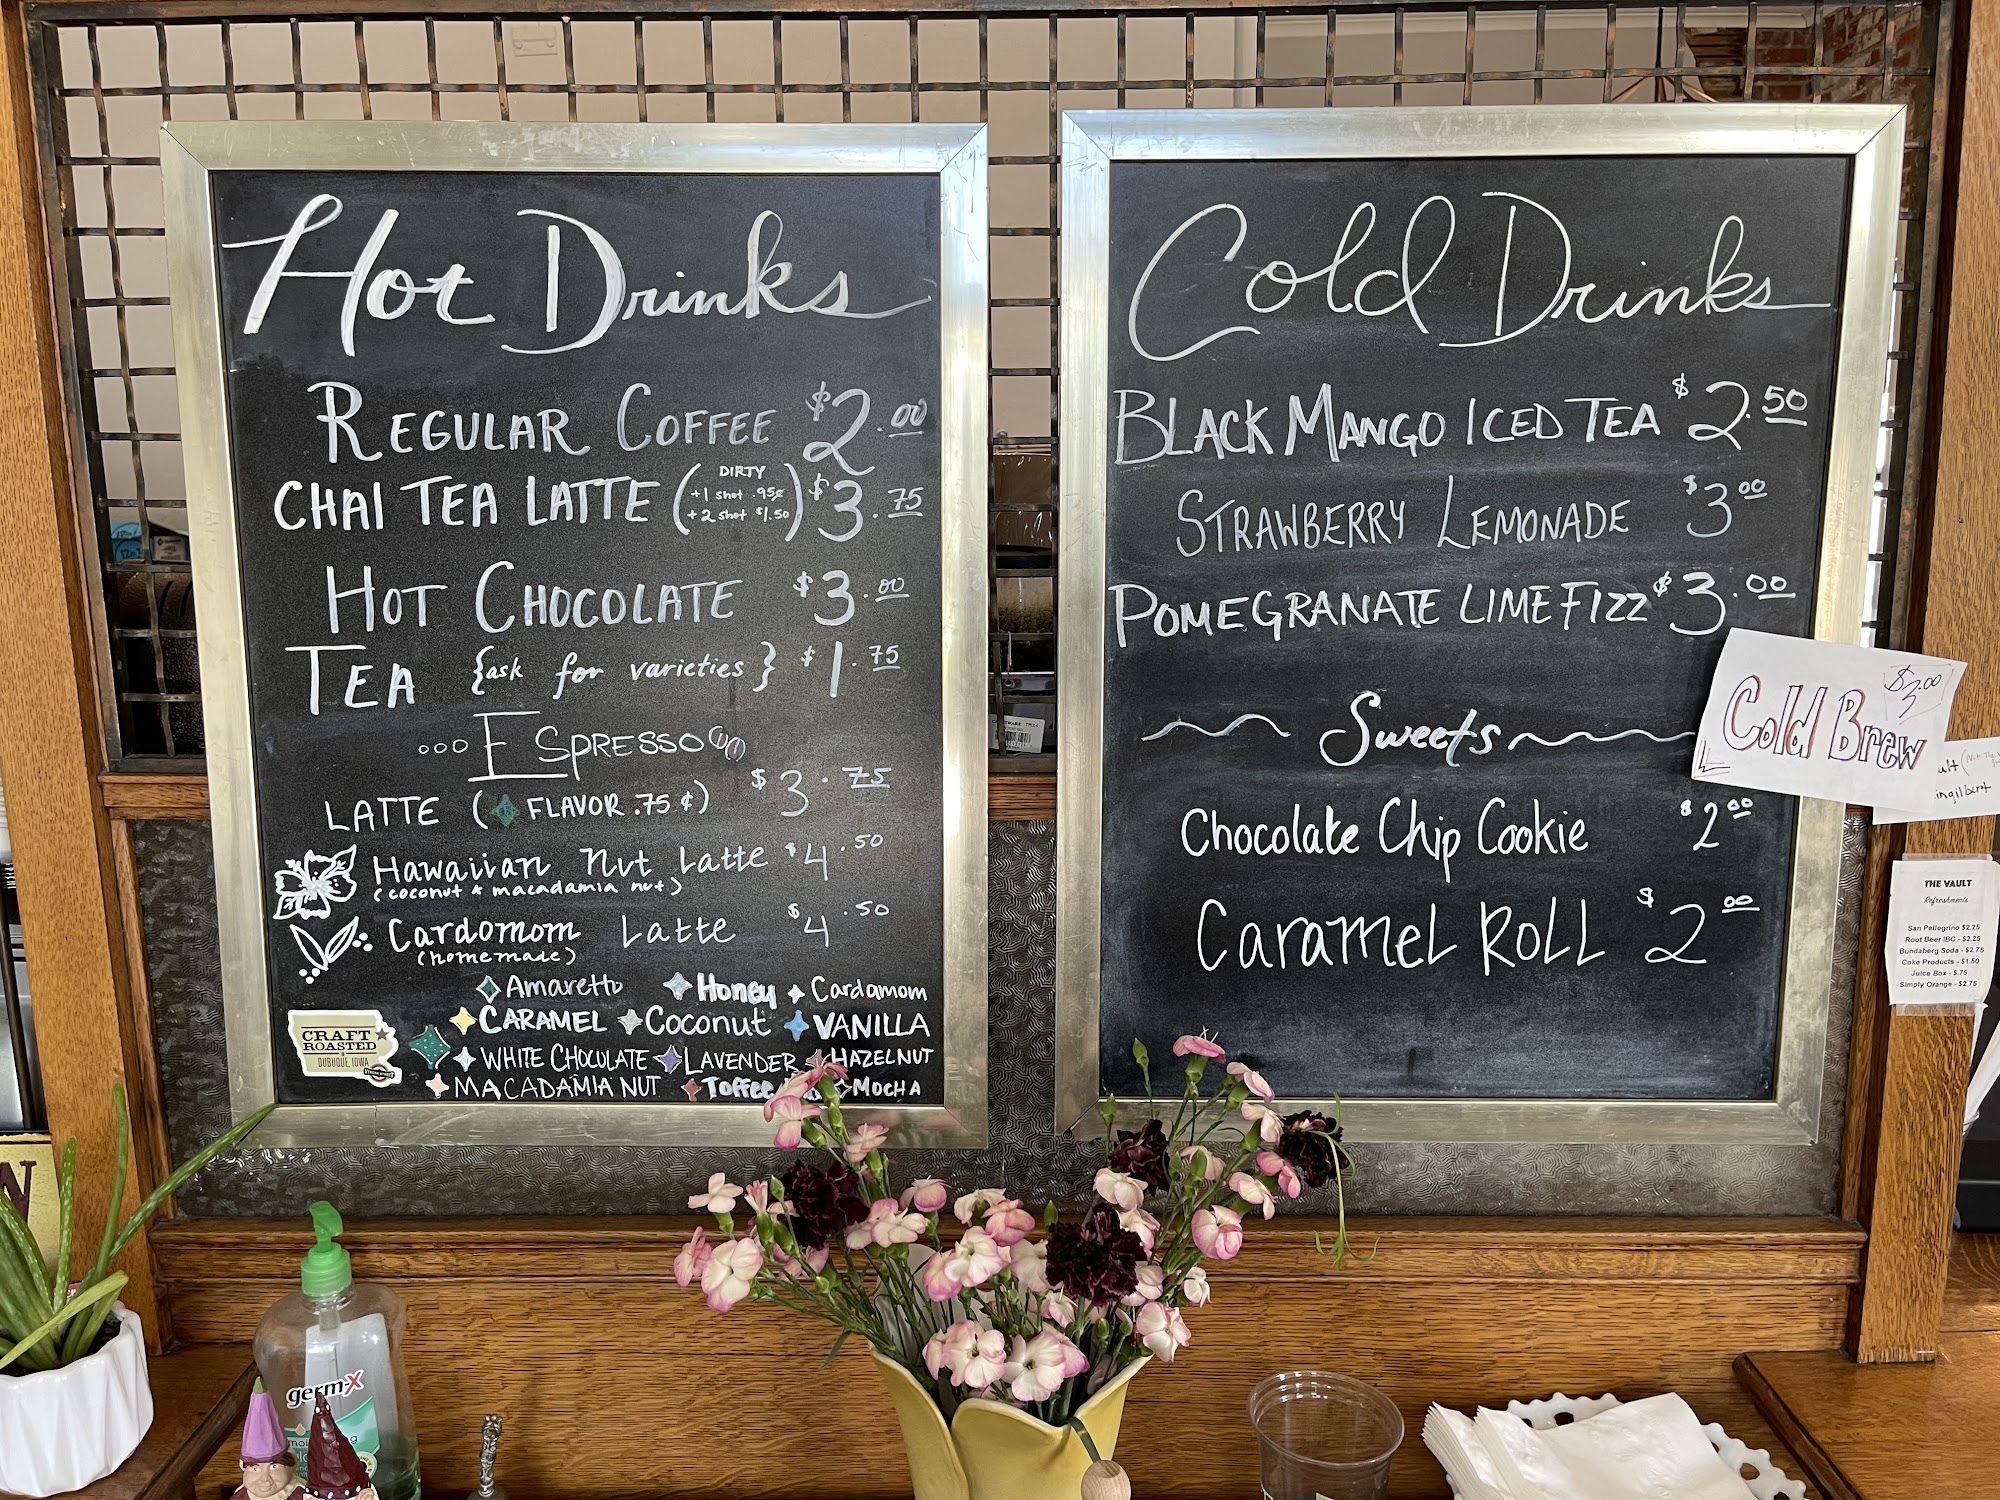 Hot Drinks
REGULAR COFFEE $2.00
CHAI TEA LATTE (DIRTY +1 shot .95¢ +2 shot $1.50) $3.75
HOT CHOCOLATE $3.00
TEA {ask for varieties} $1.75
ESPRESSO
LATTE (FLAVOR .75¢) $3.75
Hawaiian Nut Latte $4.50
(coconut & macadamia nut)
Cardomom Latte $4.50
(homemade)
Amaretto Honey Cardamom
CARAMEL Coconut VANILLA
WHITE CHOCOLATE LAVENDER HAZELNUT
MACADAMIA NUT Toffee MOCHA
CRAFT
ROASTED
DUBUQUE, IOWA
Cold Drinks
BLACK MANGO ICED TEA $2.50
STRAWBERRY LEMONADE $3.00
POMEGRANATE LIME FIZZ $3.00
Sweets
Chocolate Chip Cookie $2.00
Caramel Roll $2.00
$3.00
Cold Brew
THE VAULT
Refreshments
San Pellegrino $2.25
Root Beer IBC - $2.25
Bundaberg Soda - $2.75
Coke Products - $1.50
Juice Box - $.75
Simply Orange - $2.75
germ-x